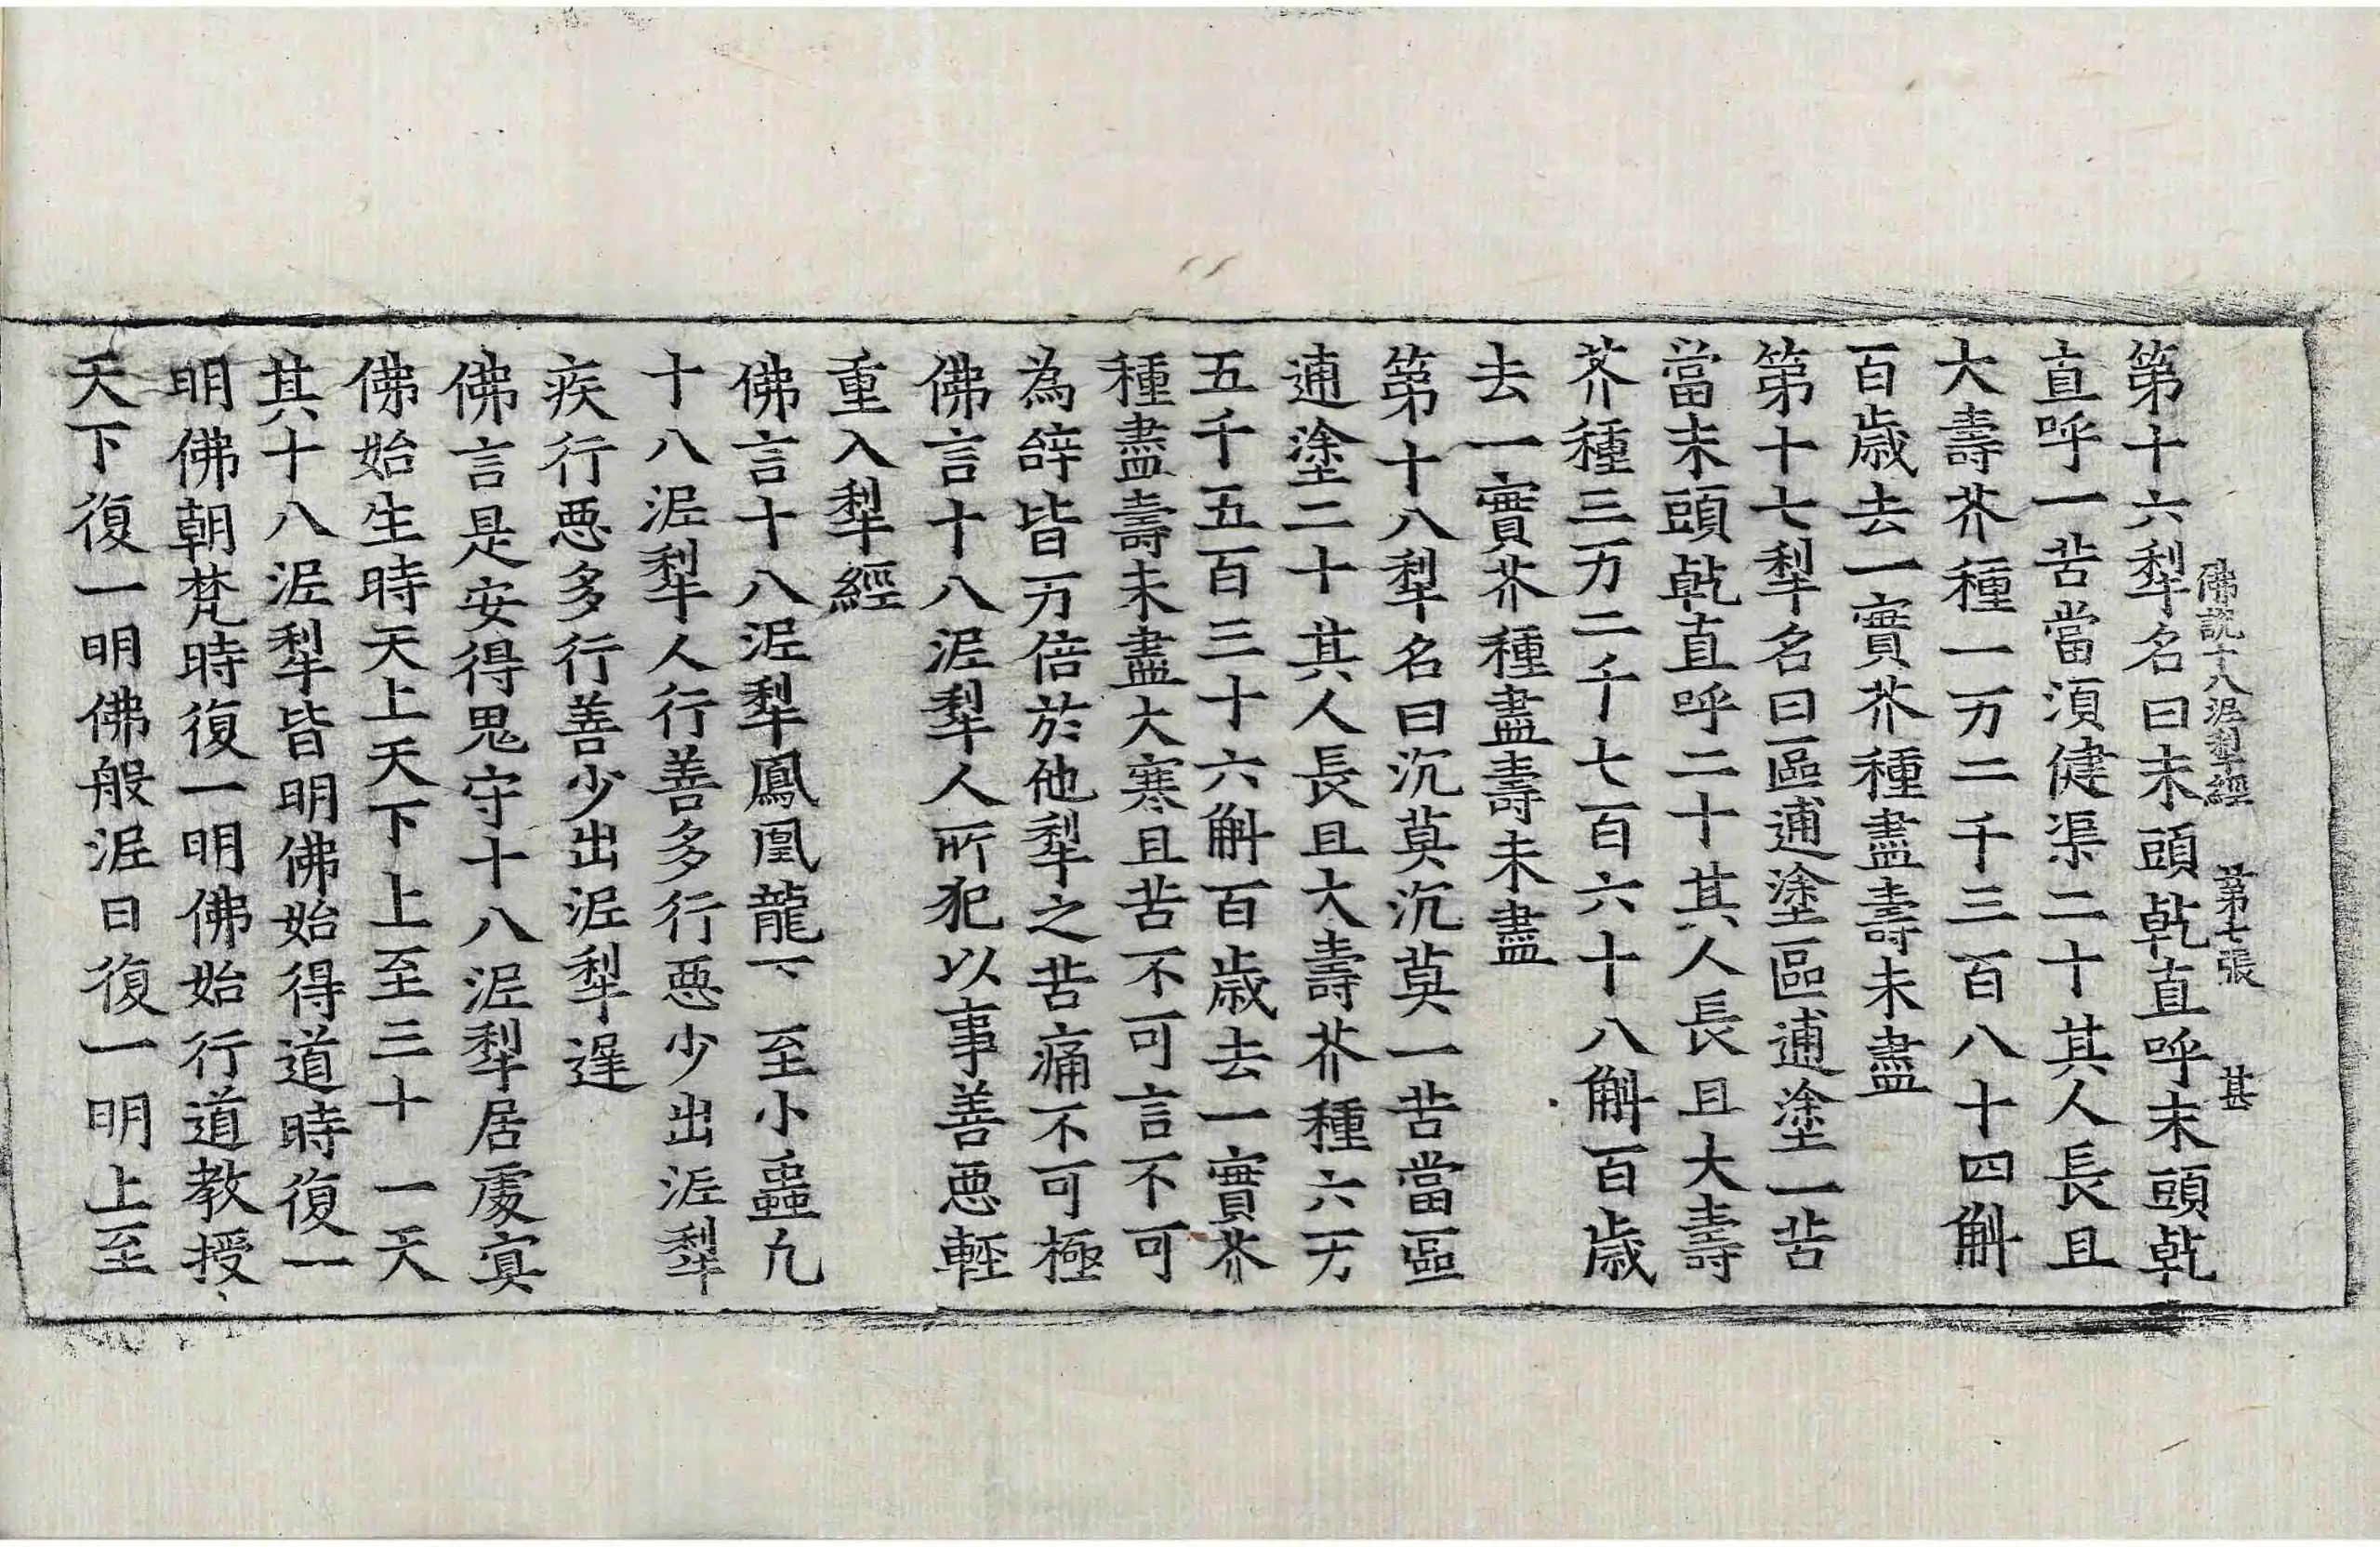 佛說十八泥犁經 第七張 甚
第十六犁名曰末頭乹直呼末頭乹
直呼一苦當湏健渠二十其人長且
大壽芥種一万二千三百八十四斛
百歲去一實芥種盡壽未盡
第十七犁名曰區逋塗區逋塗一苦
當末頭乹直呼二十其人長且大壽
芥種三万二千七百六十八斛百歲
去一實芥種盡壽未盡
第十八犁名曰沉莫沉莫一苦當區
逋塗二十其人長且大壽芥種六万
五千五百三十六斛百歲去一實芥
種盡壽未盡大寒且苦不可言不可
為辝皆万倍於他犁之苦痛不可極
佛言十八泥犁人所犯以事善惡輕
重入犁經
佛言十八泥犁鳳凰龍下至小蟲凡
十八泥犁人行善多行惡少出泥犁
疾行惡多行善少出泥犁遲
佛言是安得鬼守十八泥犁居處冥
佛始生時天上天下上至三十一天
其十八泥犁皆明佛始得道時復一
明佛朝梵時復一明佛始行道教授
天下復一明佛般泥曰復一明上至